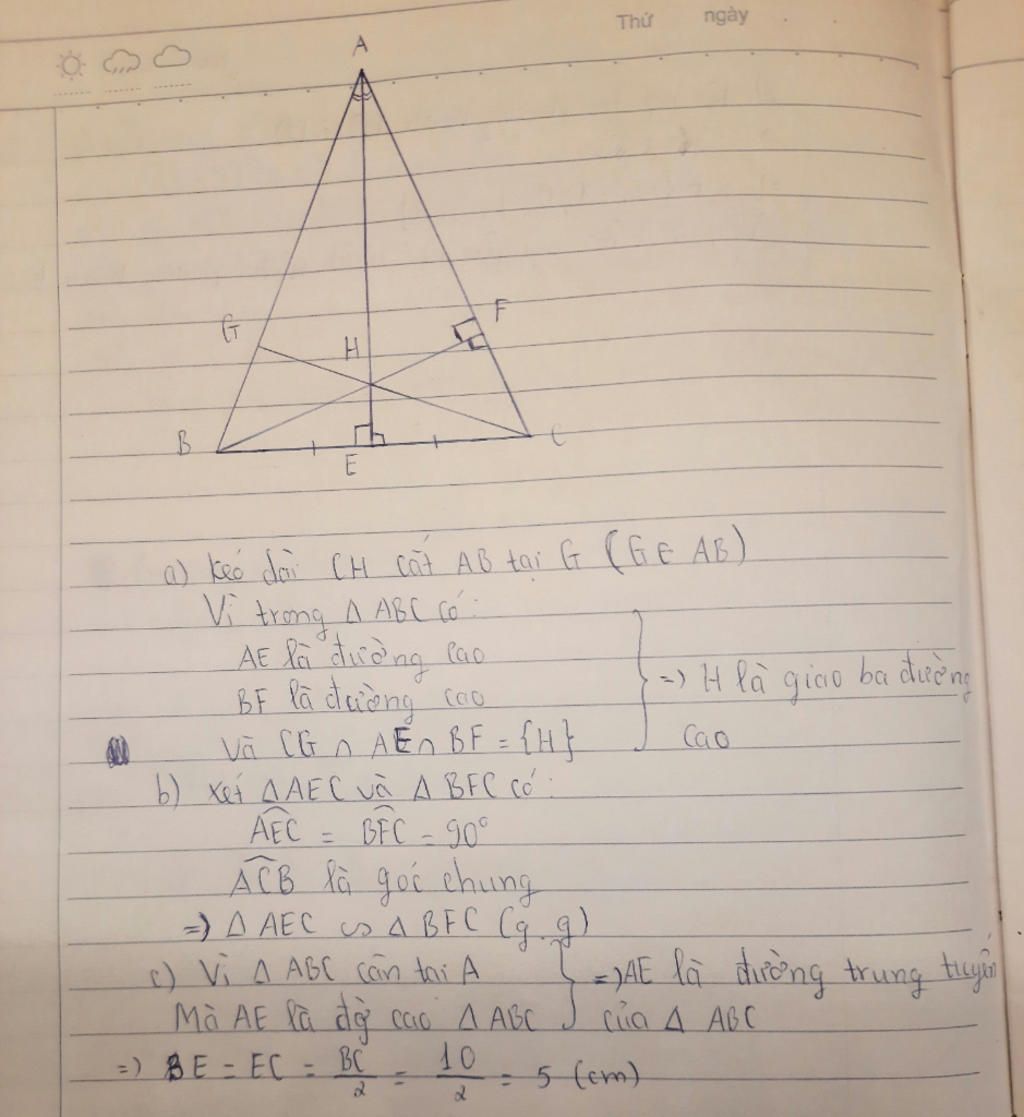 Thứ ngày
A
G
F
H
B
C
E
a) kéo dài CH cắt AB tại G (G ∈ AB)
Vì trong Δ ABC có:
AE là đường cao
BF là đường cao
Và CG ∩ AE ∩ BF = {H}
=) H là giao ba đường
cao
b) xét ΔAEC và Δ BFC có:
AEC = BFC = 90°
ACB là góc chung
=) Δ AEC ∽ Δ BFC (g.g)
c) Vì Δ ABC cân tại A
=) AE là đường trung tuyến
Mà AE là đg cao Δ ABC
của Δ ABC
=) BE = EC = BC/2 = 10/2 = 5 (cm)